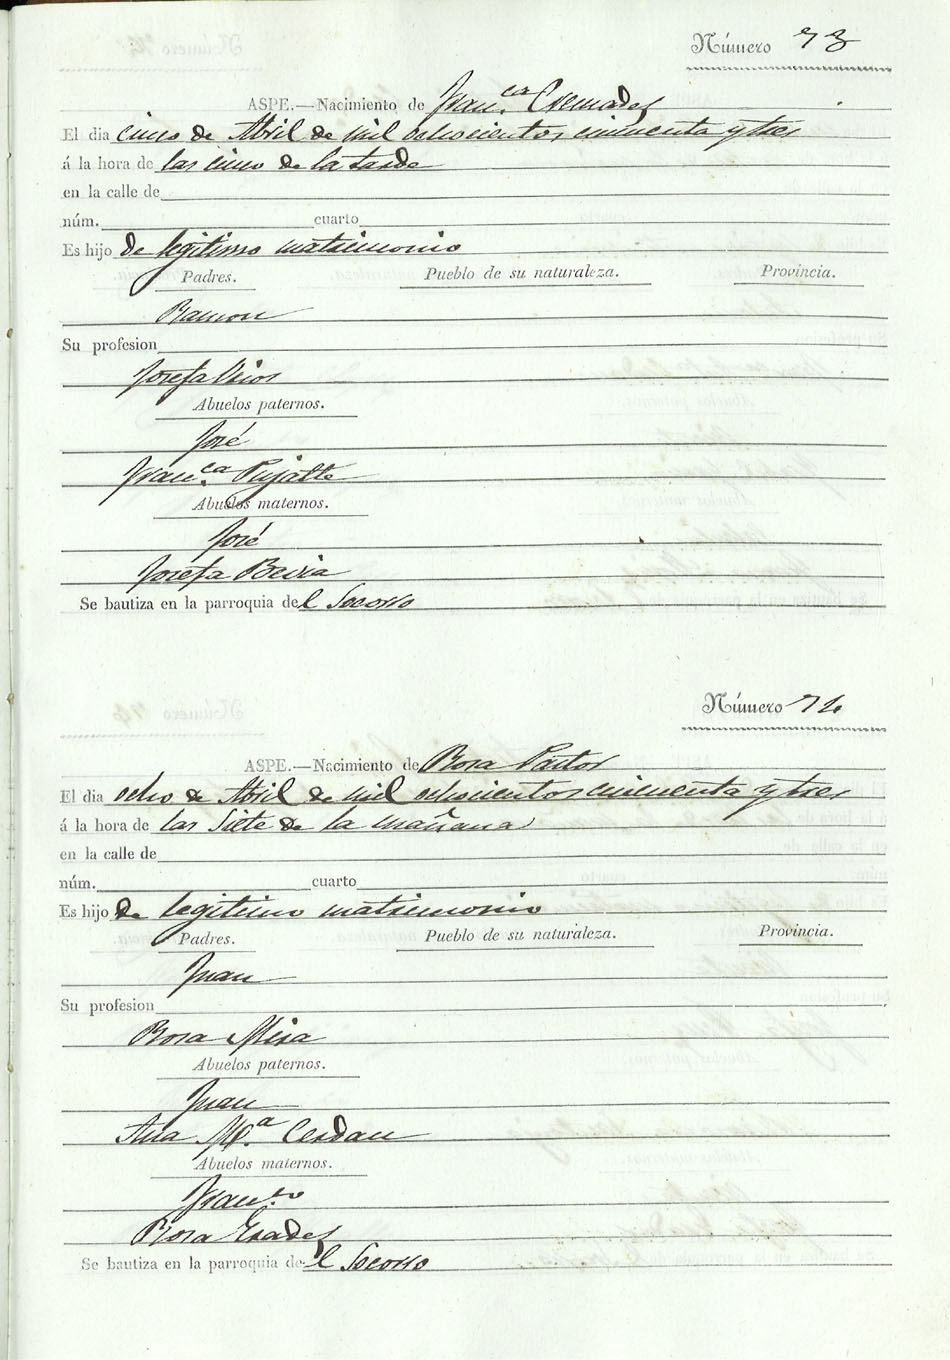 Número 73
ASPE.—Nacimiento de Fran.ca Cremades
El dia cinco de Abril de mil ochocientos cincuenta y tres
á la hora de las cinco de la tarde
en la calle de
núm. cuarto
Es hijo de legitimo matrimonio
Padres. Pueblo de su naturaleza. Provincia.
Ramon
Su profesion
Josefa
Abuelos paternos.
José
Fran.ca Pujalte
Abuelos maternos.
José
Josefa
Se bautiza en la parroquia del Socorro
Número 74
ASPE.—Nacimiento de Rosa Pastor
El dia ocho de Abril de mil ochocientos cincuenta y tres
á la hora de las Siete de la mañana
en la calle de
núm. cuarto
Es hijo de legitimo matrimonio
Padres. Pueblo de su naturaleza. Provincia.
Juan
Su profesion
Rosa Mira
Abuelos paternos.
Juan
Ana M.a Cerdan
Abuelos maternos.
Fran.co
Rosa
Se bautiza en la parroquia del Socorro